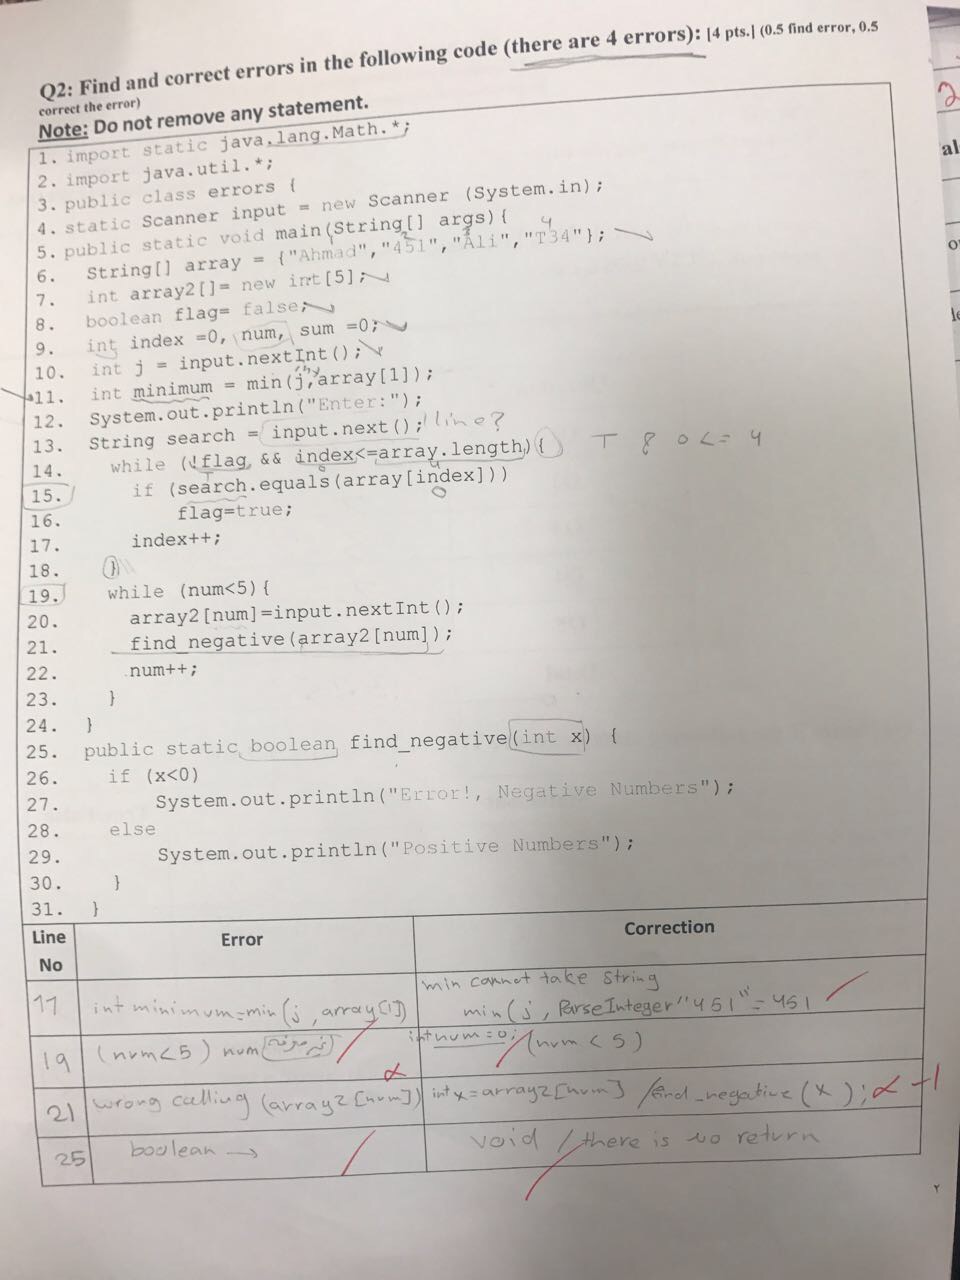 Q2: Find and correct errors in the following code (there are 4 errors): [4 pts.] (0.5 find error, 0.5
correct the error)
Note: Do not remove any statement.
1. import static java.lang.Math.*;
2. import java.util.*;
3. public class errors {
4. static Scanner input = new Scanner (System.in);
5. public static void main(String[] args){
6. String[] array = {"Ahmad","451","Ali","T34"};
7. int array2[]= new int[5];
8. boolean flag= false;
9. int index =0, num, sum =0;
10. int j = input.nextInt();
11. int minimum = min(j,array[1]);
12. System.out.println("Enter:");
13. String search = input.next(); line?
14. while (!flag && index<=array.length){ T 8 0 <= 4
15. if (search.equals(array[index]))
16. flag=true;
17. index++;
18. }
19. while (num<5){
20. array2[num]=input.nextInt();
21. find_negative(array2[num]);
22. num++;
23. }
24. }
25. public static boolean find_negative(int x) {
26. if (x<0)
27. System.out.println("Error!, Negative Numbers");
28. else
29. System.out.println("Positive Numbers");
30. }
31. }
Line No Error Correction
11 int minimum=min(j,array[1]) min cannot take String
min(j, ParseInteger"451"=451
19 (num<5) num int num=0; (num<5)
21 wrong calling (array2[num]) int x=array2[num] /find_negative(x); -1
25 boolean → void / there is no return
٢